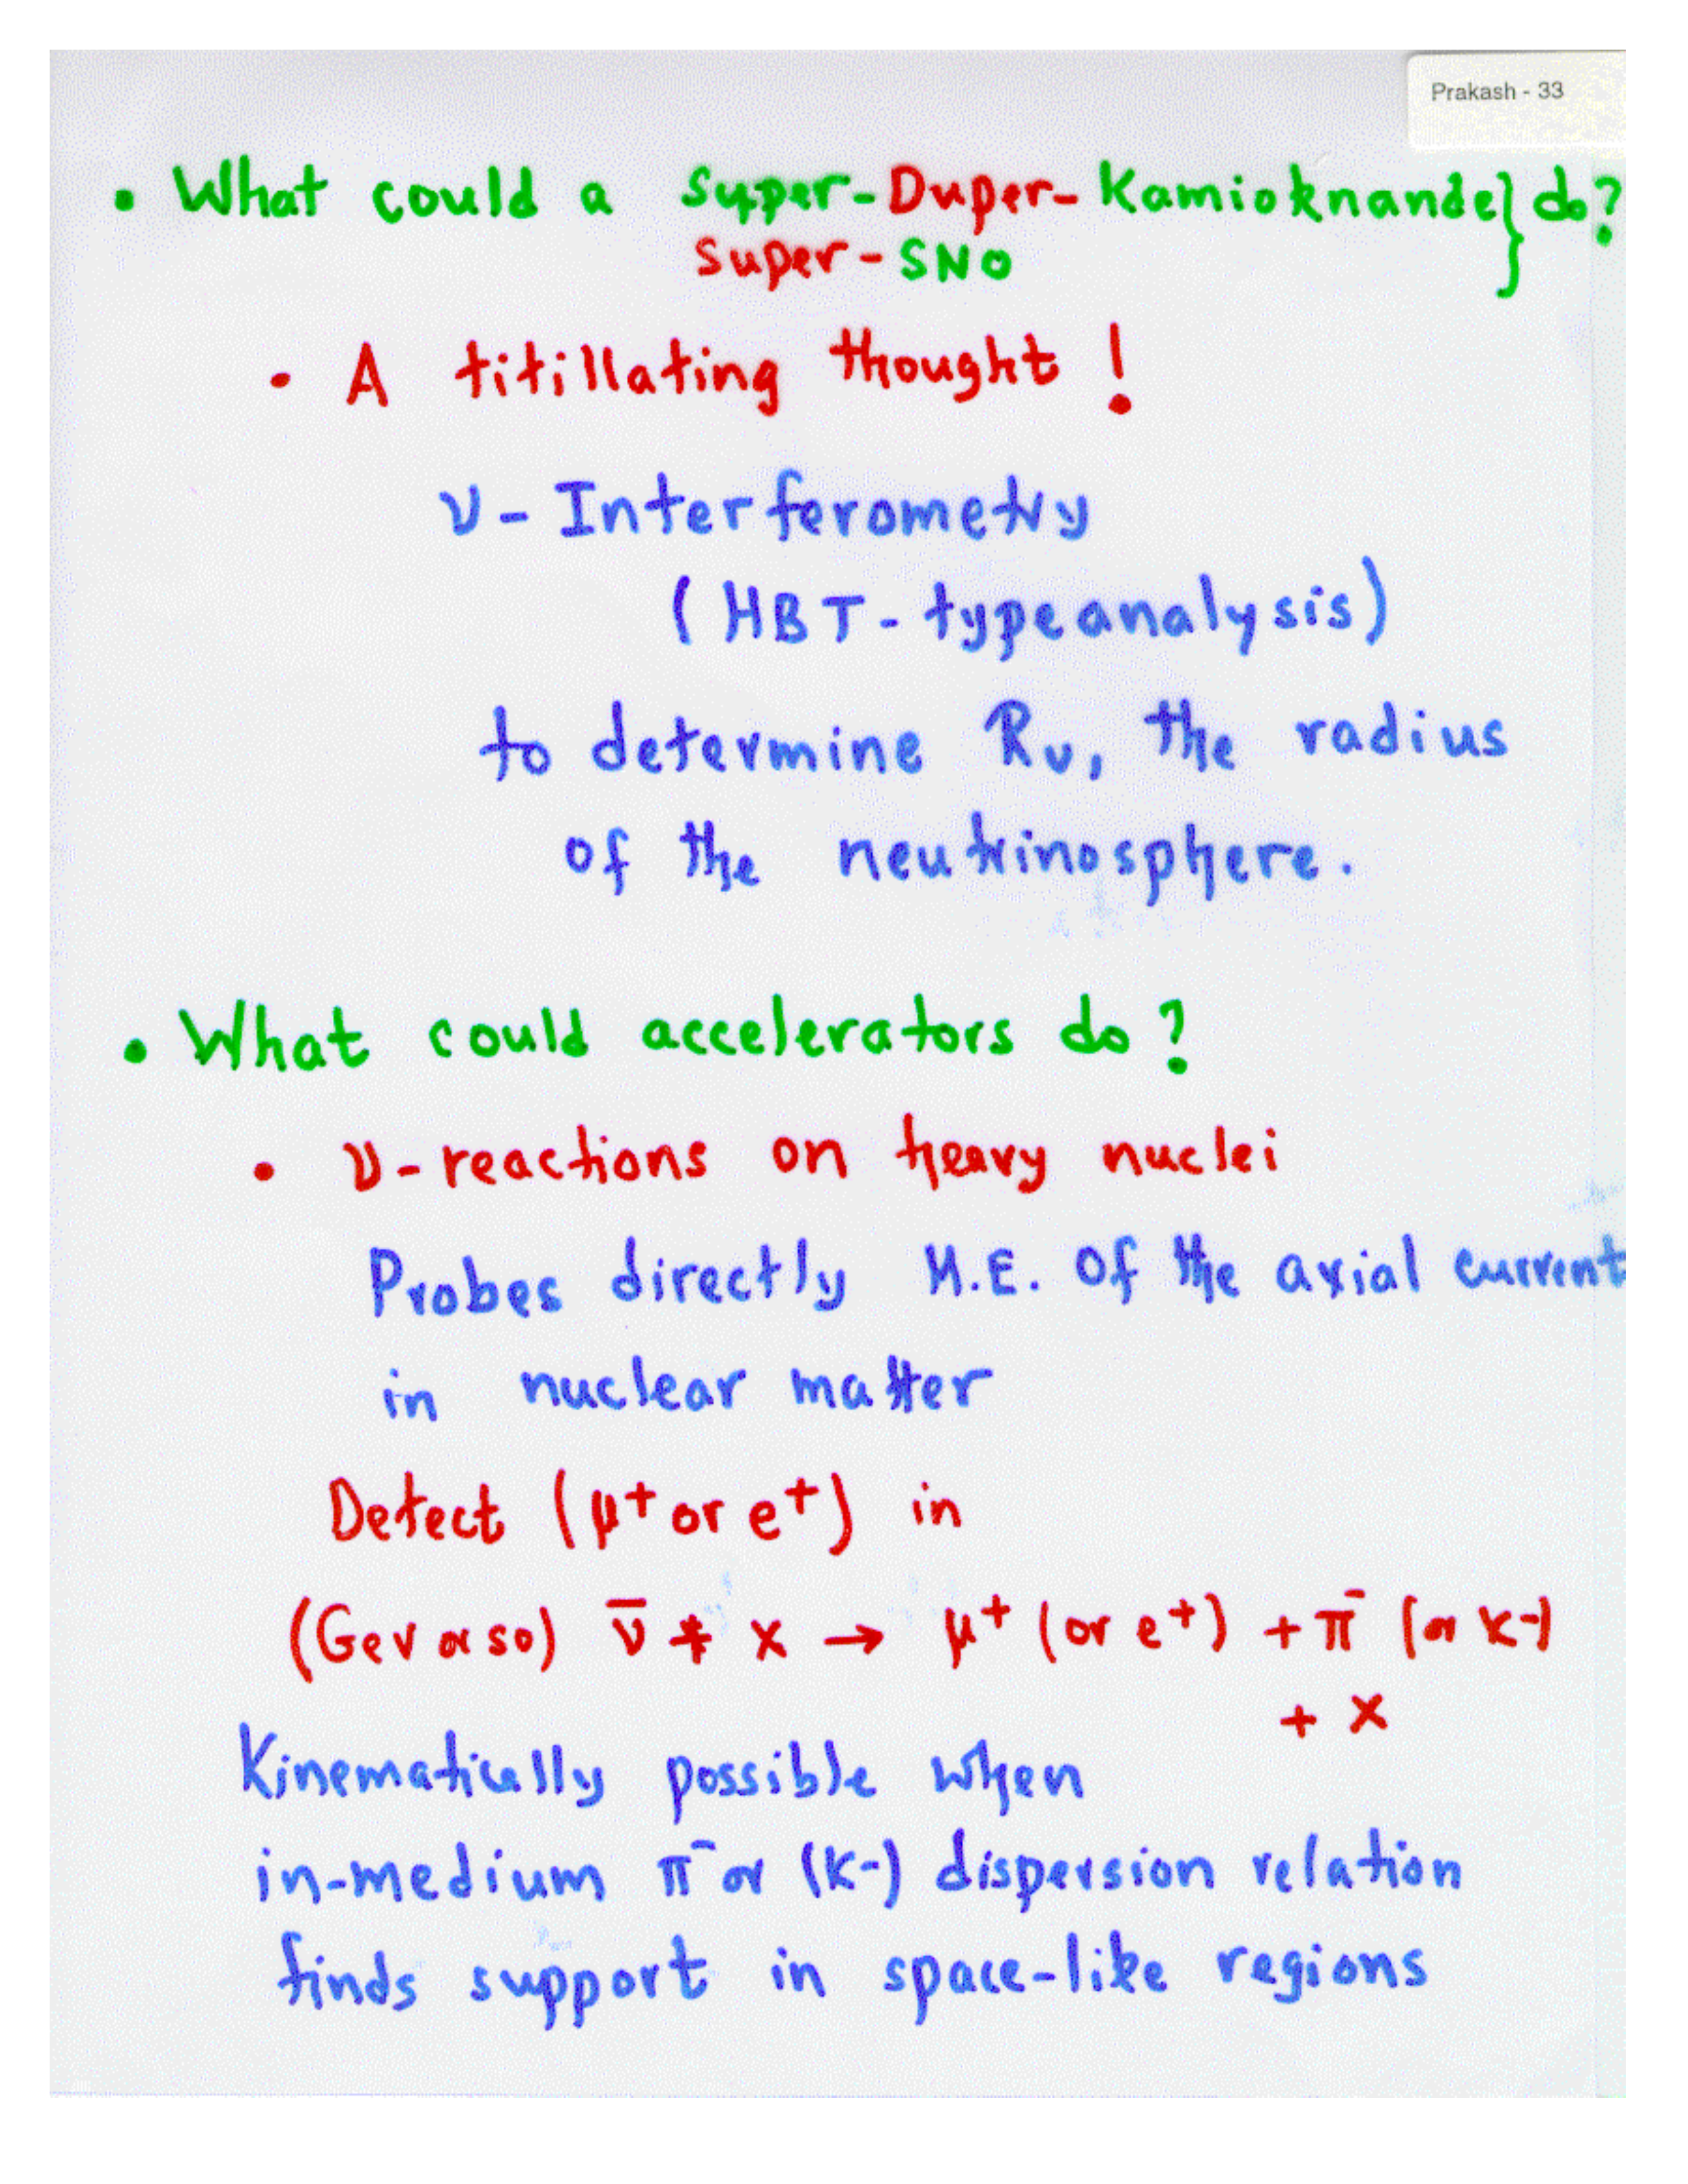 Prakash - 33
• What could a Super-Duper-Kamioknande} do?
Super-SNO
• A titillating thought!
ν-Interferometry
(HBT-type analysis)
to determine Rν, the radius
of the neutrinosphere.
• What could accelerators do?
• ν-reactions on heavy nuclei
Probes directly M.E. of the axial current
in nuclear matter
Detect (μ+ or e+) in
(GeV or so) ν̄ + X → μ+ (or e+) + π- (or K-)
+ X
Kinematically possible when
in-medium π- or (K-) dispersion relation
finds support in space-like regions